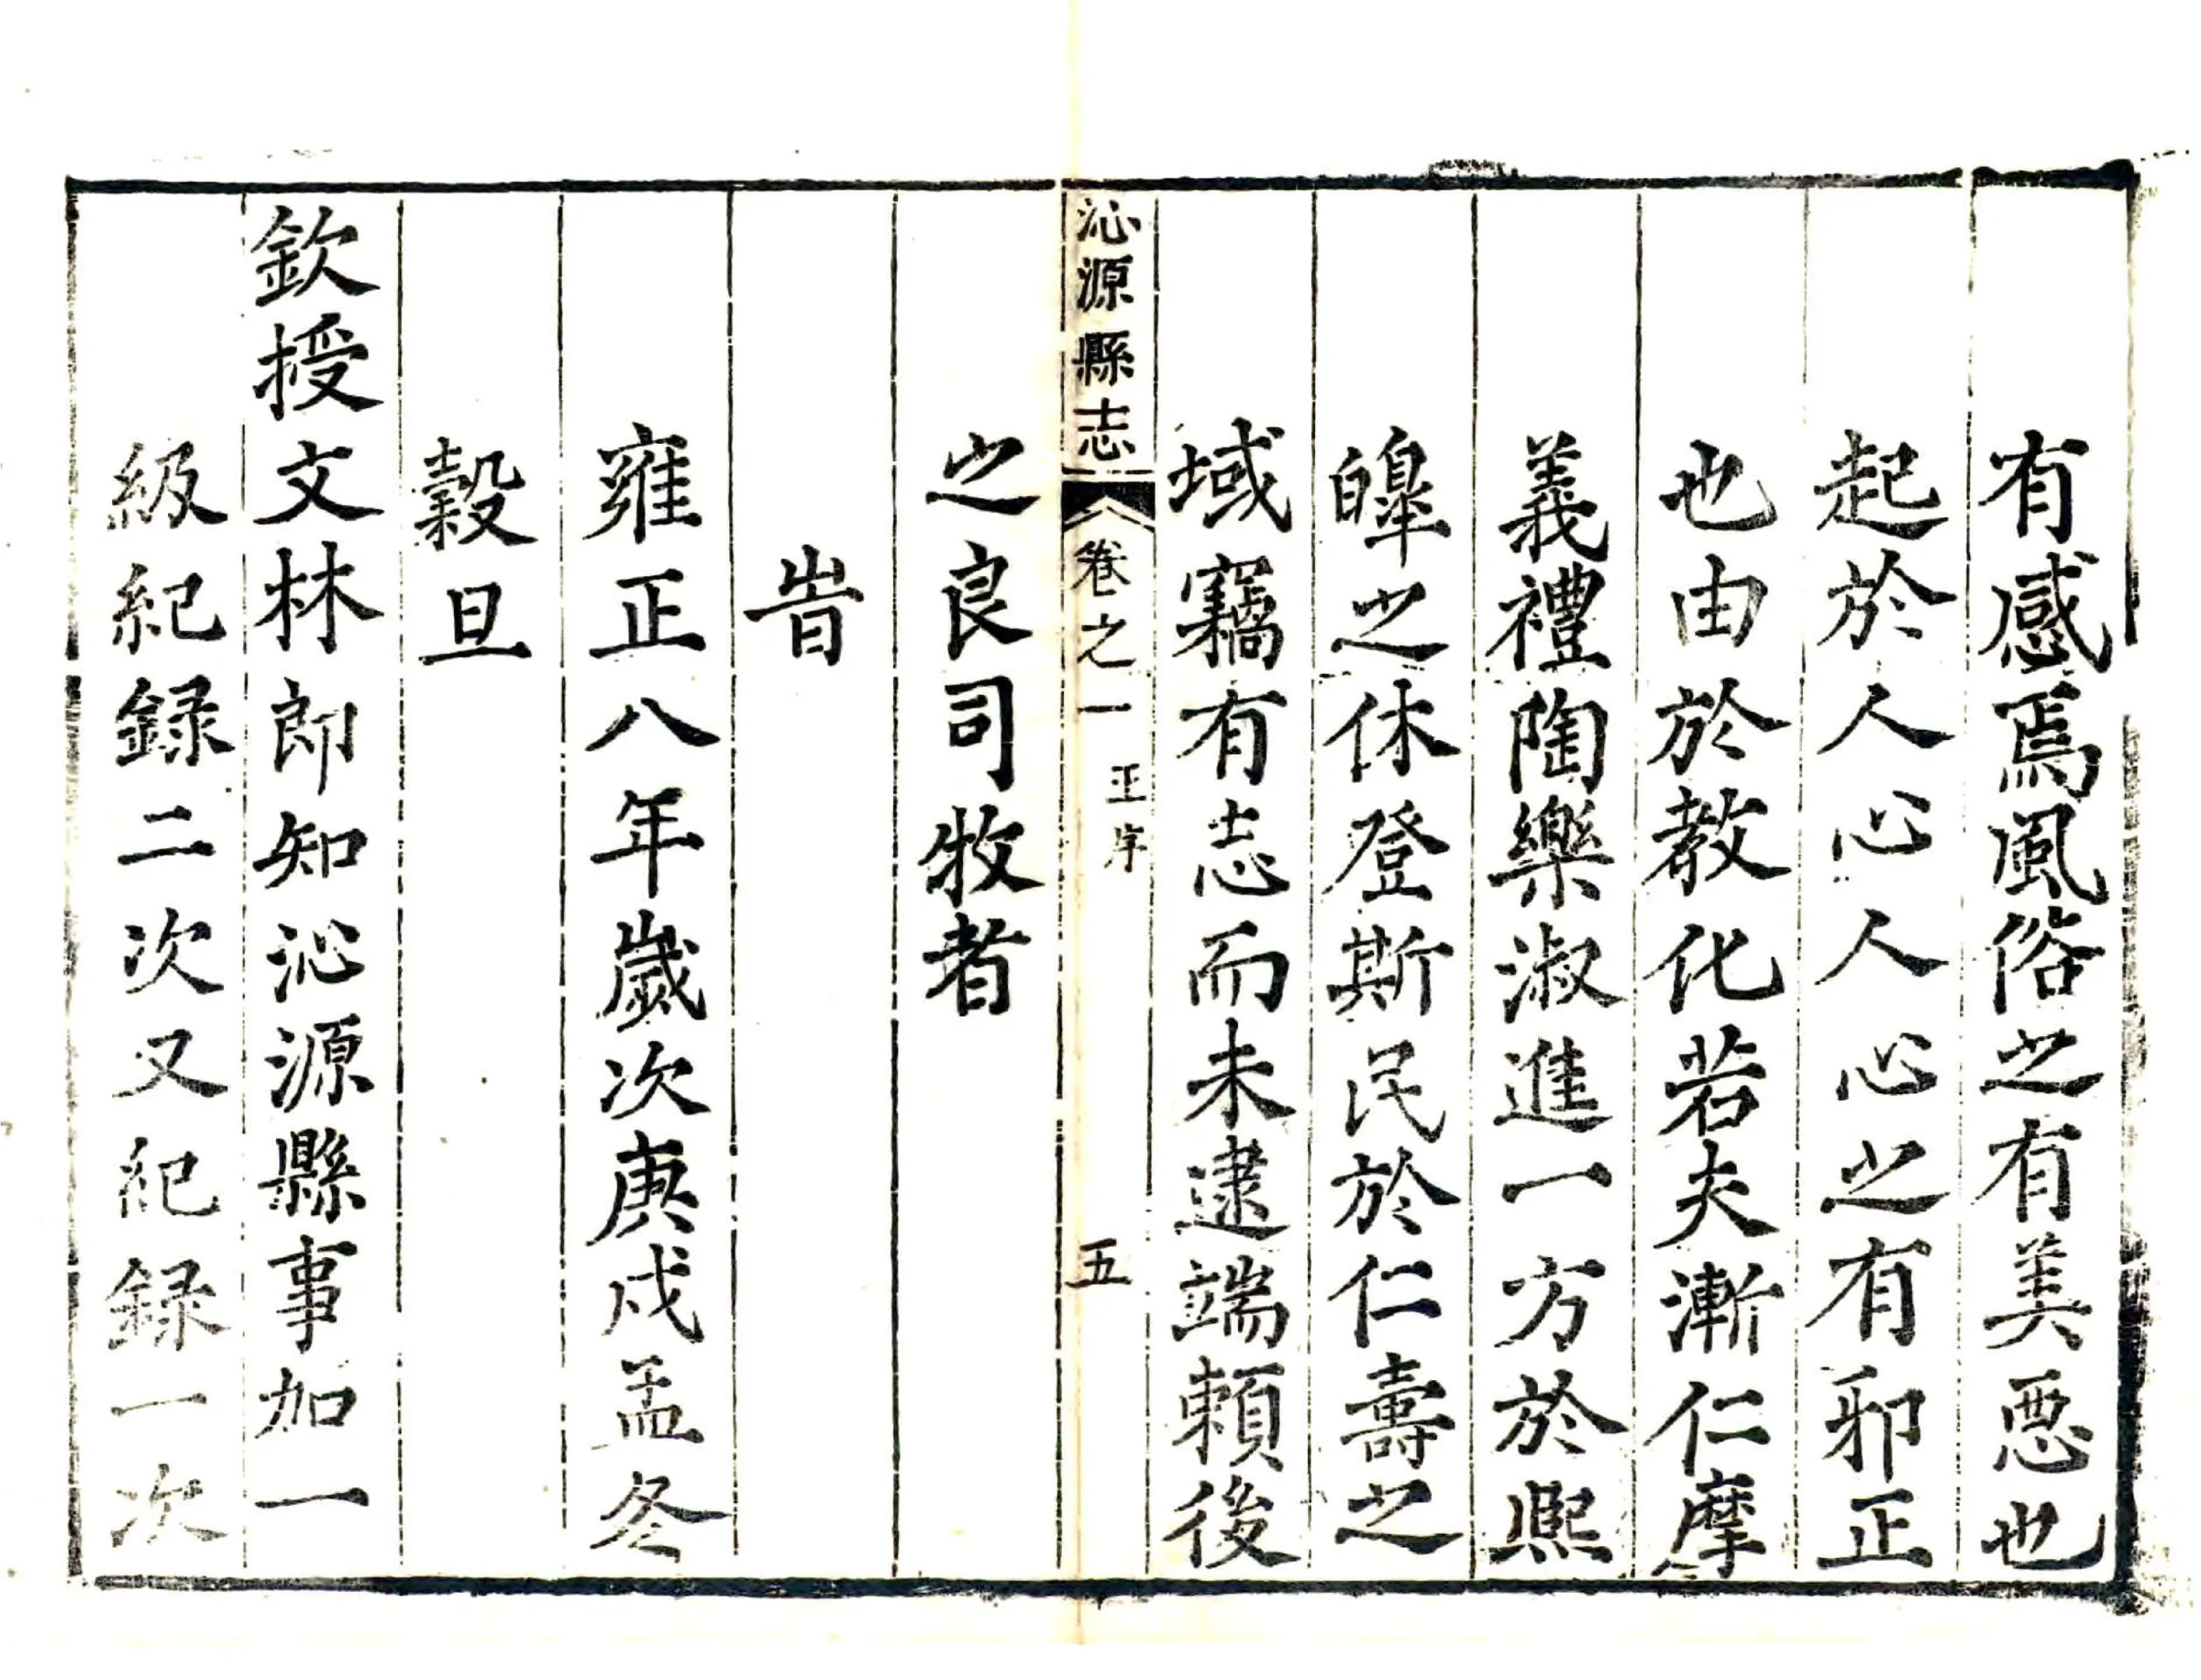 有感焉風俗之有美惡也
起於人心人心之有邪正
也由於教化若夫漸仁摩
義禮陶樂淑進一方於熈
皥之休登斯民於仁壽之
域竊有志而未逮端賴後
沁源縣志
卷之一
王序
五
之良司牧者
旹
雍正八年歲次庚戌孟冬
穀旦
欽授文林郎知沁源縣事加一
級紀録二次又紀録一次